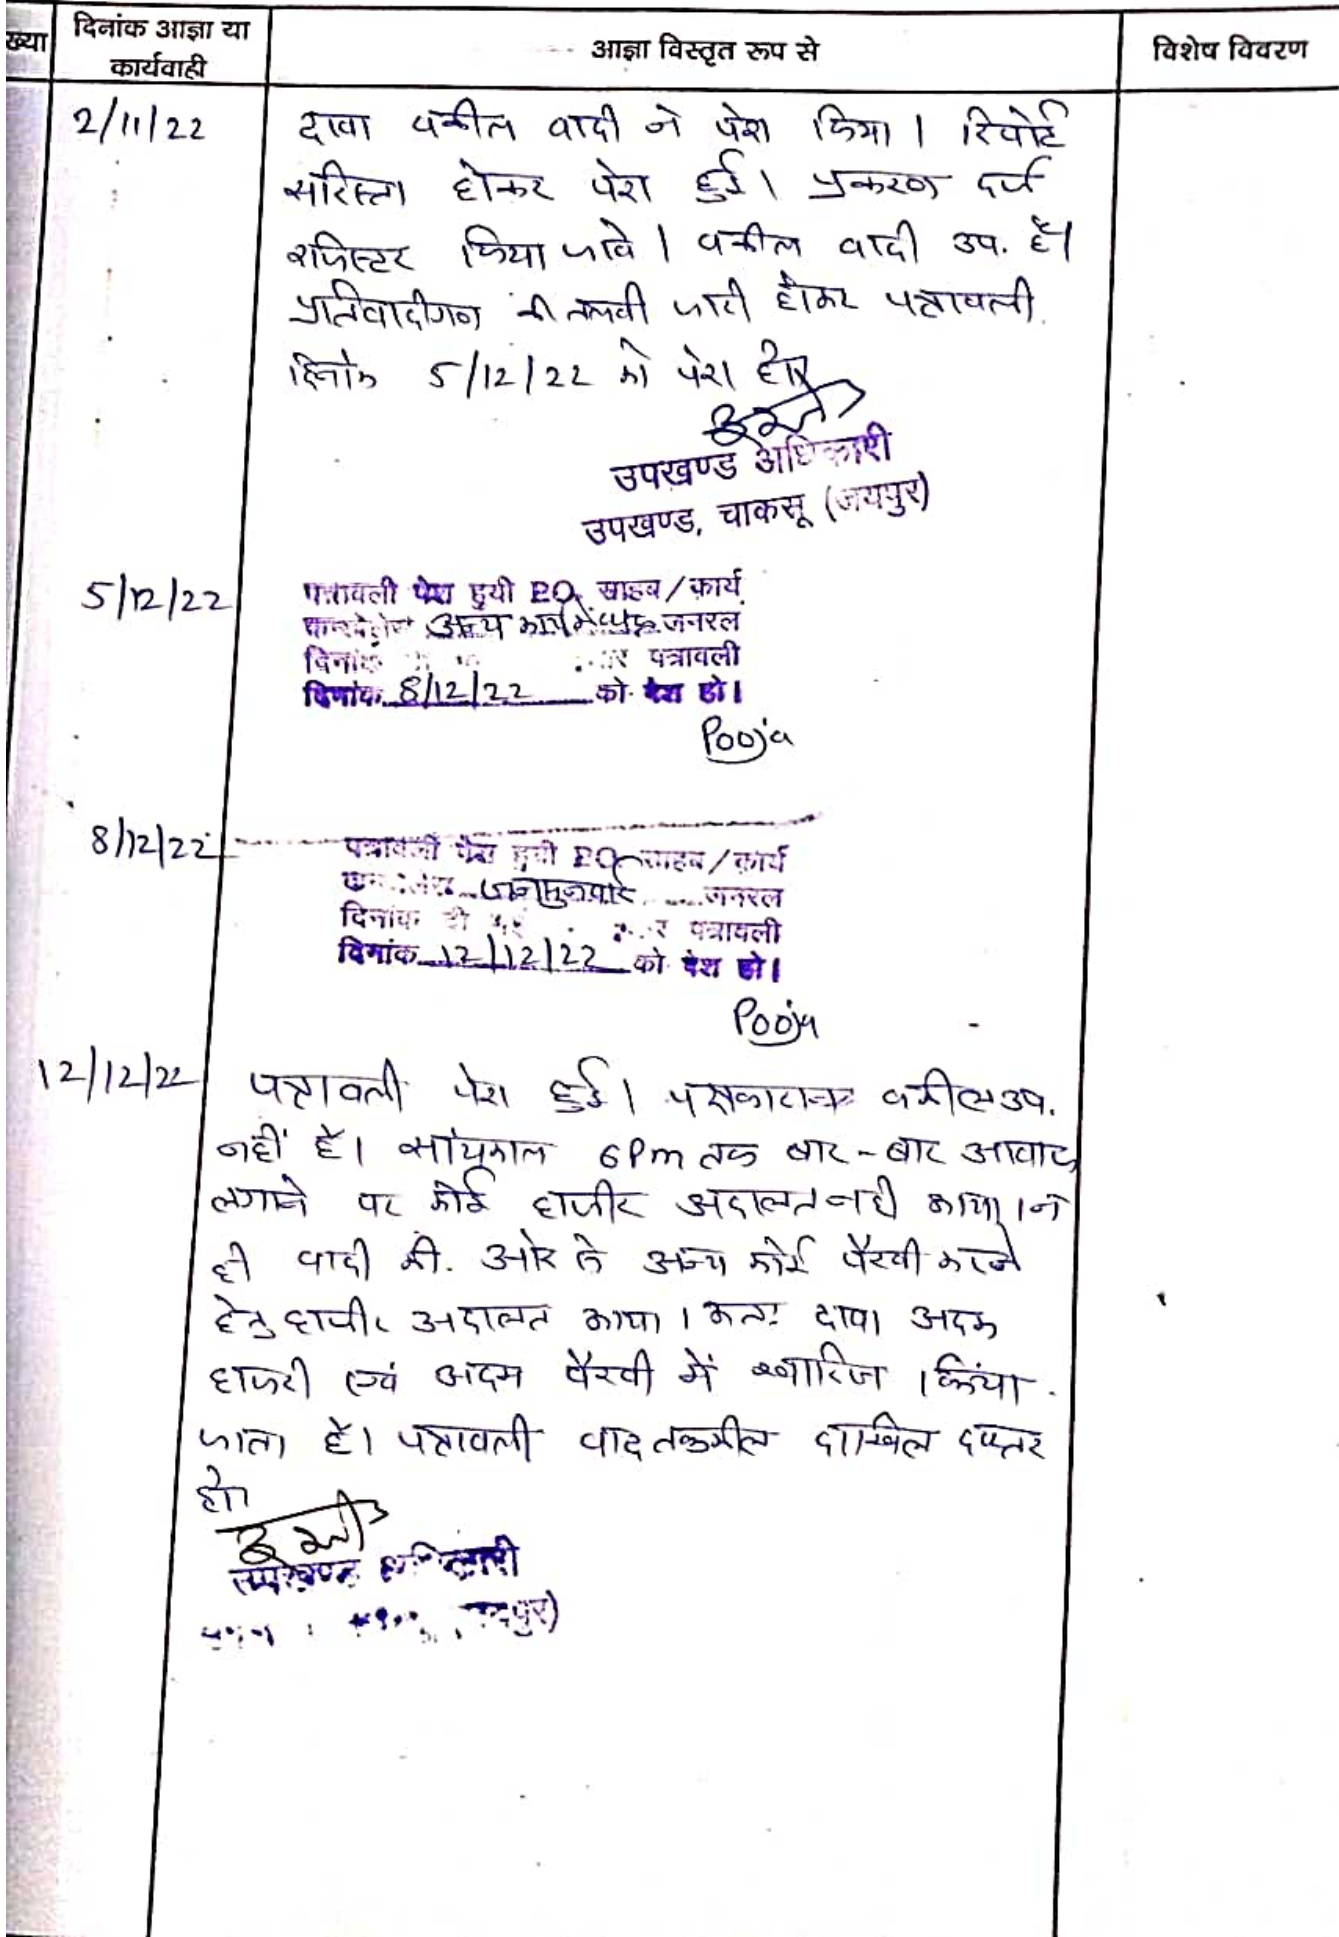 ख्या
दिनांक आज्ञा या
कार्यवाही
आज्ञा विस्तृत रूप से
विशेष विवरण
2/11/22
दावा वकील वादी ने पेश किया। रिपोर्ट
सरिस्ता होकर पेश हुई। प्रकरण दर्ज
रजिस्टर किया जावे। वकील वादी उप. है।
प्रतिवादीगण की तलबी जारी होकर पत्रावली
दिनांक 5/12/22 को पेश हो।
उपखण्ड अधिकारी
उपखण्ड, चाकसू (जयपुर)
5/12/22
पत्रावली पेश हुयी P.O. साहब/कार्य
अन्य कार्य में व्यस्त जनरल
दिनांक पत्रावली
दिनांक 8/12/22 को पेश हो।
Pooja
8/12/22
पत्रावली पेश हुयी P.O. साहब/कार्य
जनसुनवाई जनरल
दिनांक पत्रावली
दिनांक 12/12/22 को पेश हो।
Pooja
12/12/22
पत्रावली पेश हुई। वकील उप.
नहीं है। सांयकाल 6Pm तक बार-बार आवाज
लगाने पर कोई हाजीर अदालत नही आया। न
ही वादी की. ओर से अन्य कोई पैरवी करने
हेतु हाजीर अदालत आया। अतः दावा अदम
हाजरी एवं अदम पैरवी में खारिज किया
जाता है। पत्रावली वाद तकमील दाखिल दफ्तर
हो।
उपखण्ड अधिकारी